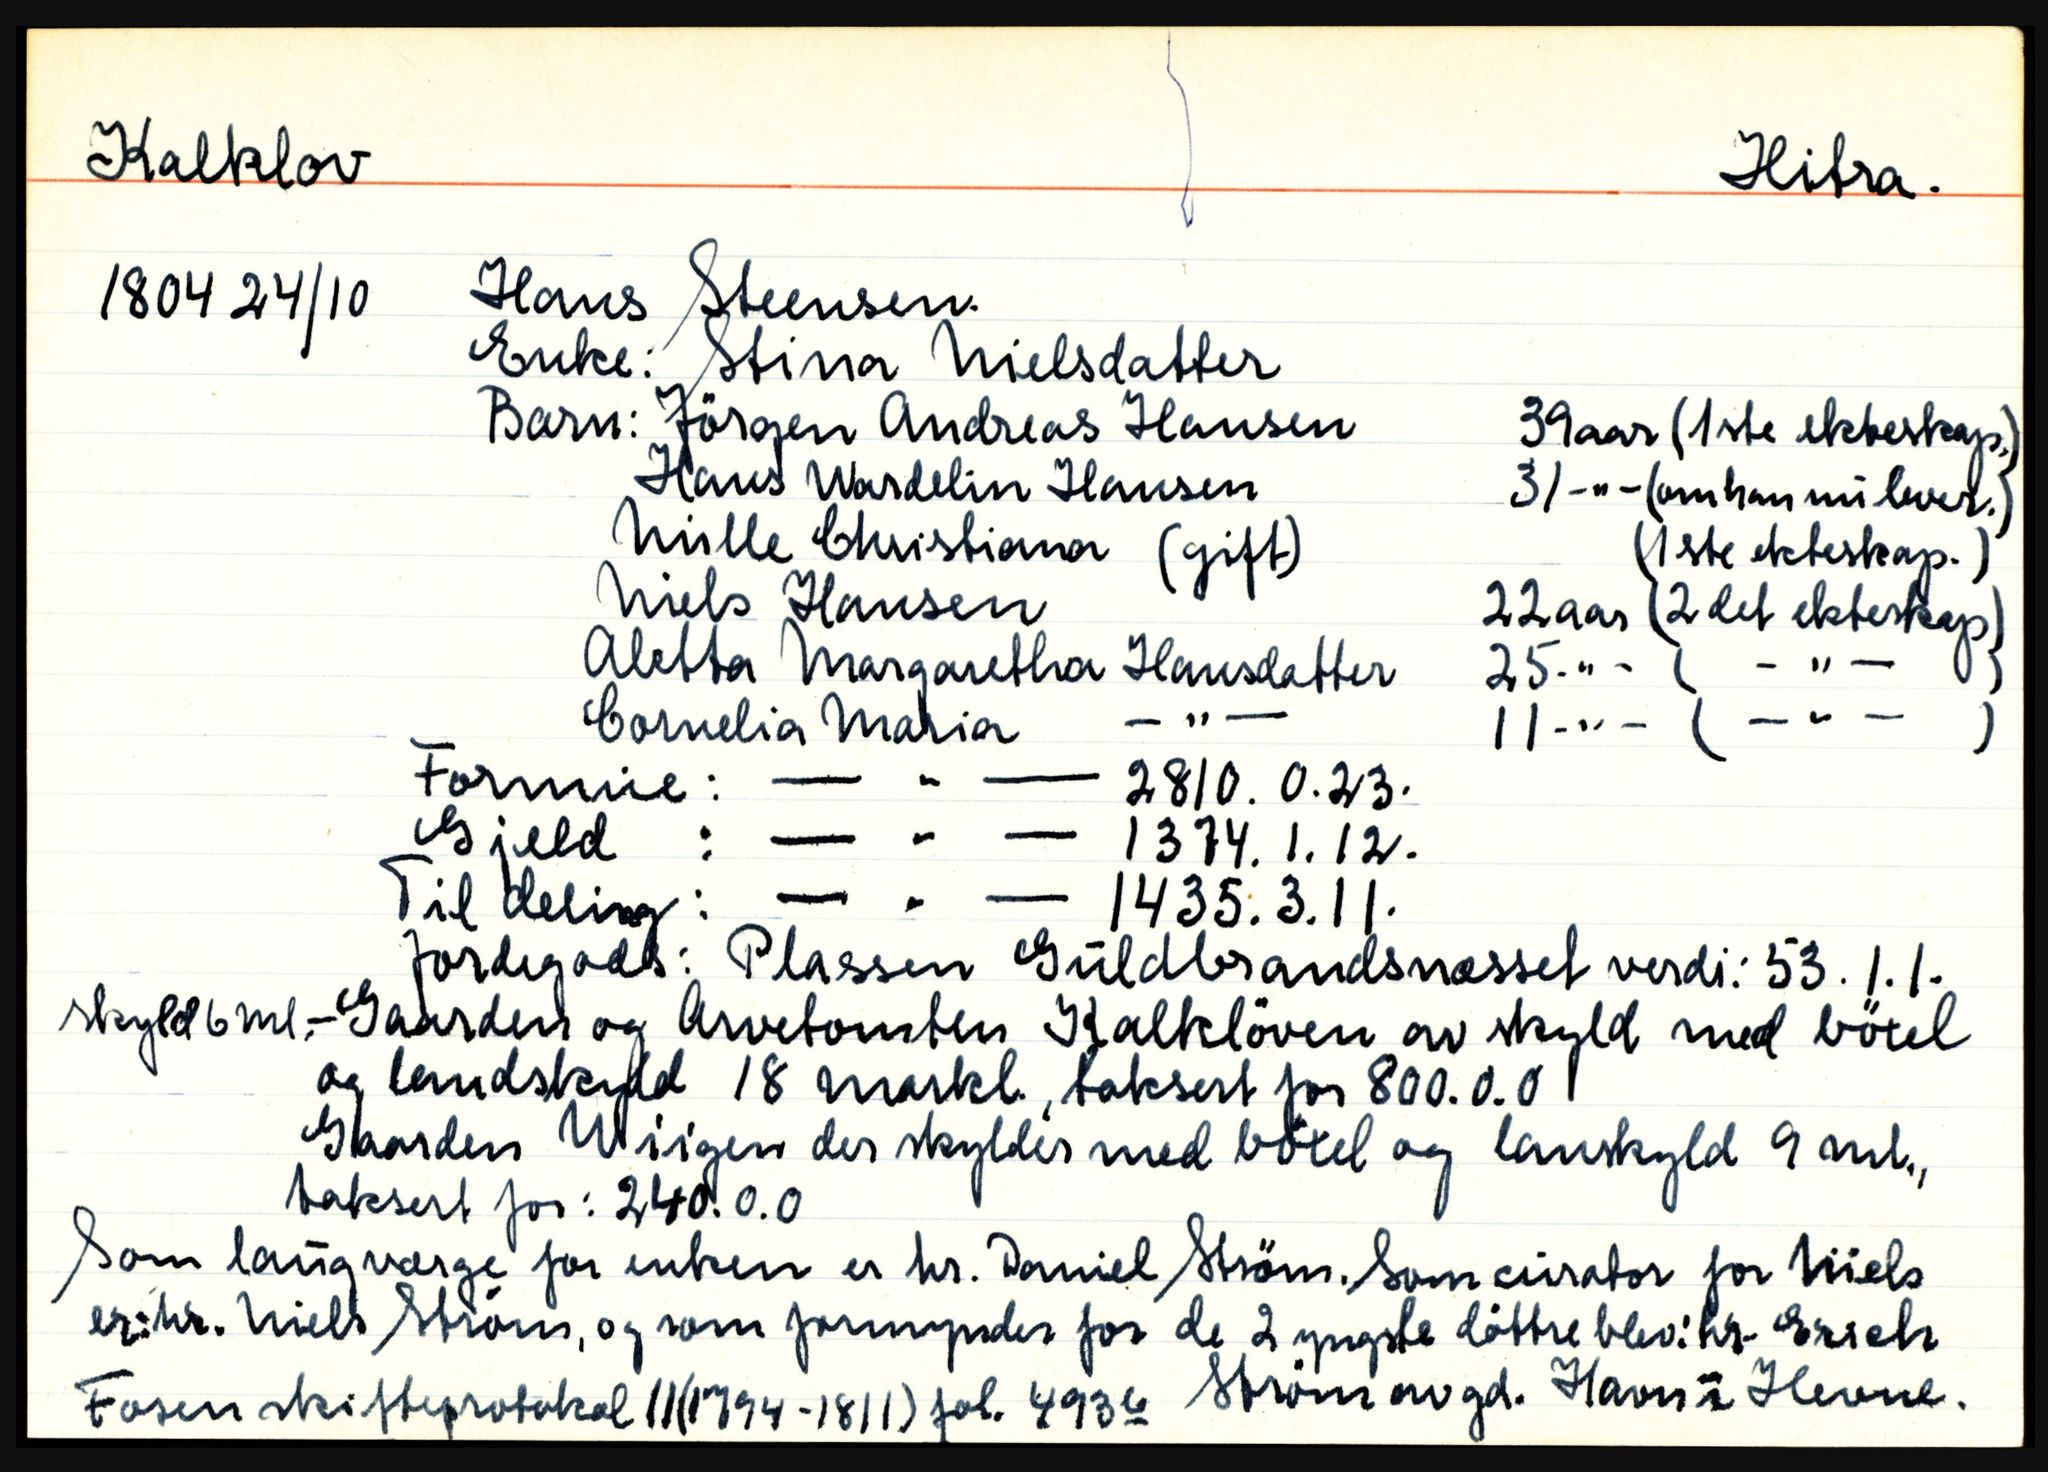 Kalklov Hitra.
1804 24/10 Hans Steensen.
Enke: Stina Nielsdatter
Barn: Jörgen Andreas Hansen 39 aar (1ste ekteskap.)
Hans Wardelin Hansen 31 -"- (om han nu lever.)
Nille Christiana (gift) (1ste ekteskap.)
Niels Hansen 22 aar (2det ekteskap)
Aletta Margaretha Hansdatter 25 -"- ( -"- )
Cornelia Maria -"- 11 -"- ( -"- )
Formue: — " — 2810. 0. 23.
Gjeld : — " — 1374. 1. 12.
Til deling: — " — 1435. 3. 11.
Jordegods: Plassen Guldbrandsnæsset verdi: 53. 1. 1.
skyld 6 ml. - Gaarden og Arvetomten Kalklöven av skyld med böxel
og landskyld 18 markl., taksert for 800. 0. 0
Gaarden Wiigen der skylder med böxel og lanskyld 9 ml.,
taksert for: 240. 0. 0
Som laugværge for enken er hr. Daniel Ström. Som curator for Niels
er: hr. Niels Ström, og som formynder for de 2 yngste döttre blev: hr. Erich
Fosen skifteprotokol 11 (1794-1811) fol. 493b Ström av gd. Havn i Hevne.